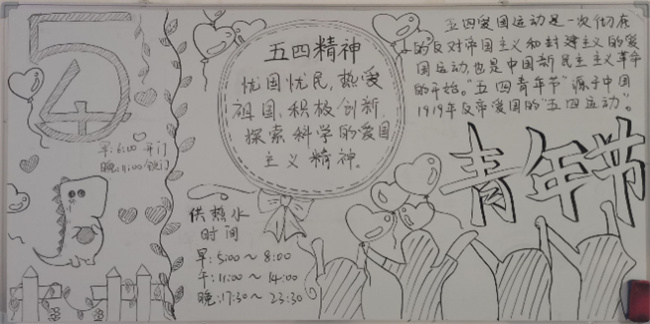 五
四
早:6:00 开门
晚:11:00 锁门
五四精神
忧国忧民,热爱
祖国,积极创新
探索科学的爱国
主义精神.
供热水
时间
早:5:00~8:00
午:11:00~14:00
晚:17:30~23:30
五四爱国运动是一次彻底
的反对帝国主义和封建主义的爱
国运动,也是中国新民主主义革命
的开始。"五四青年节"源于中国
1919年反帝爱国的"五四运动"。
青年节